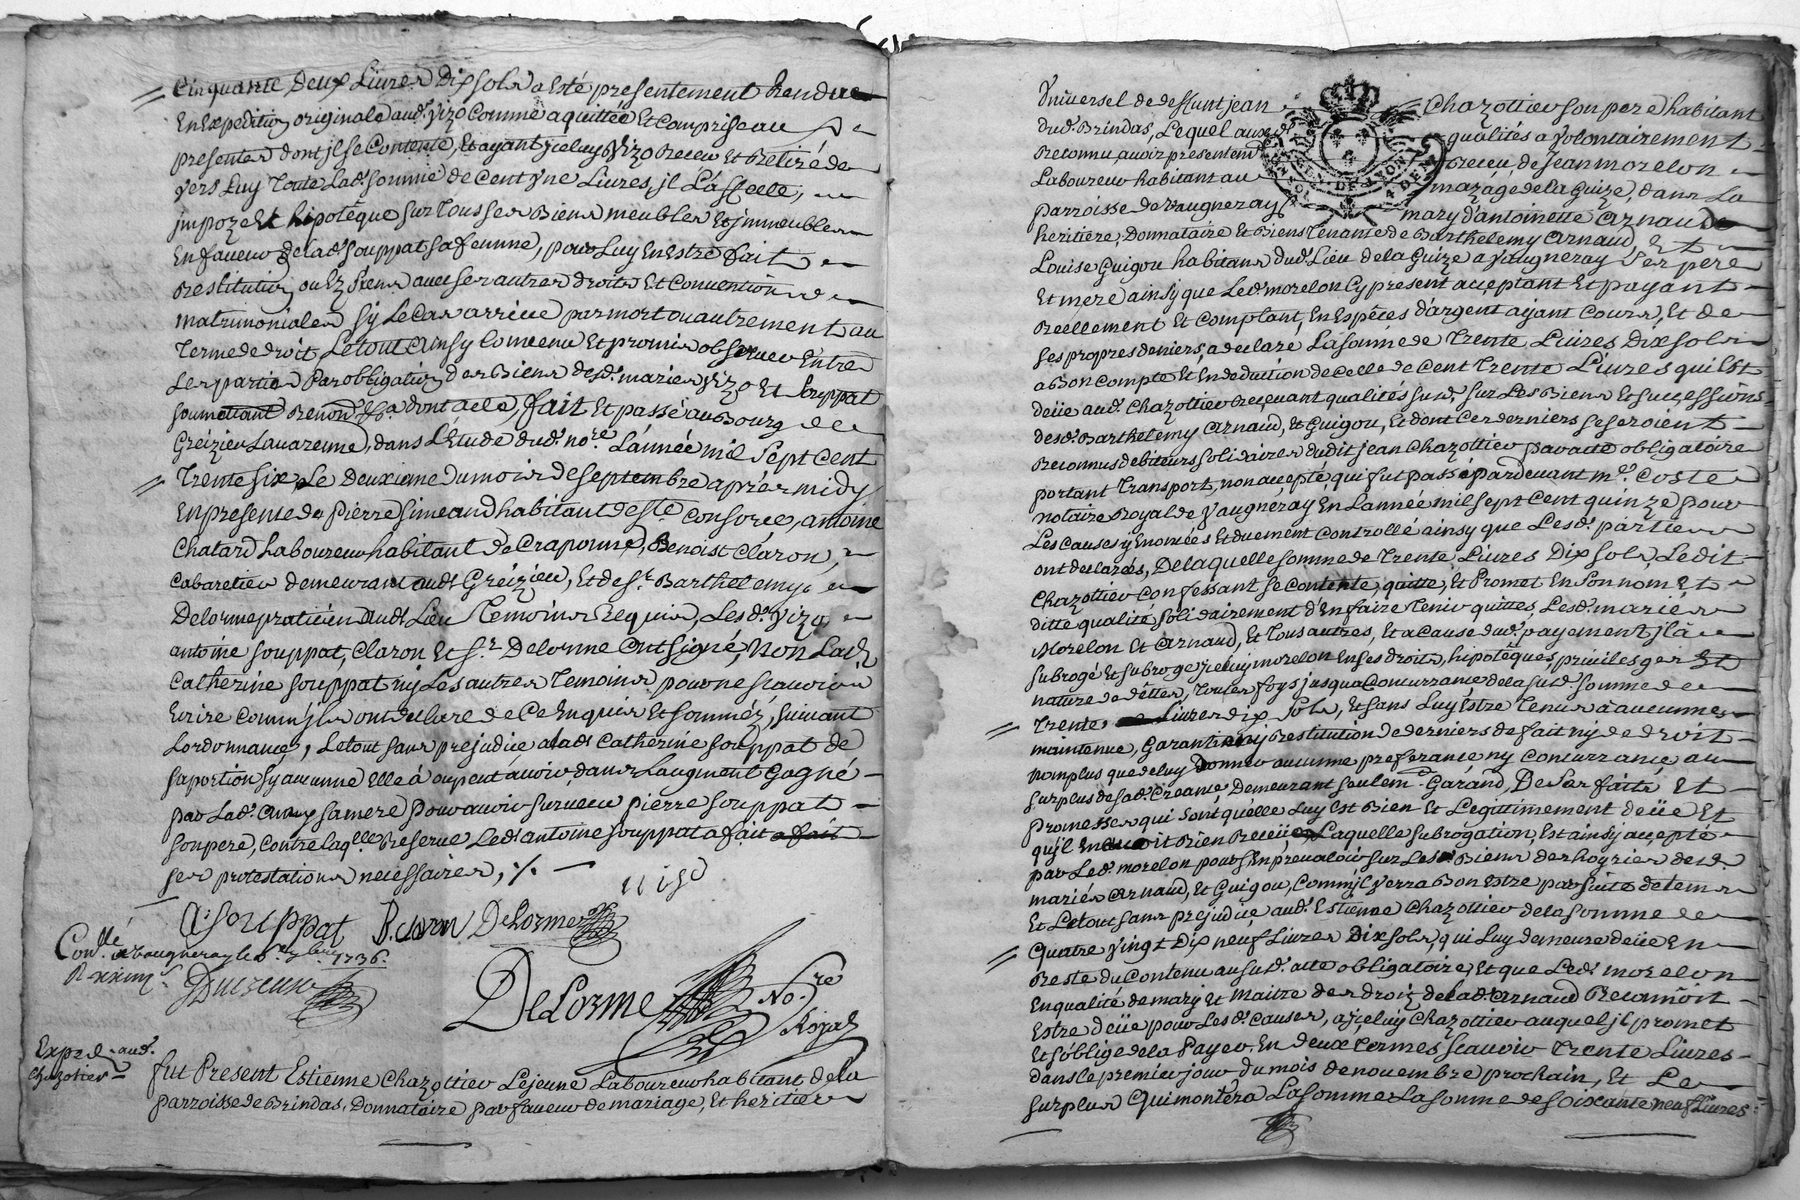 Cinquante deux Livres Dix sols a esté presentement Rendue
En Expedition originale aud. Vizo Comme aquittée Et Comprise au
presenter dont jl se Contente, Et ayant jceluy Vizo Receu Et Retiré de
vers Luy Toute Lad. somme de Cent Vne Livres, jl L'assoelle,
jmpoze Et hipotèque sur Tous ses Biens meubles Et jmmeubles
En faveur de lad. souppat sa femme, pour Luy En Estre fait
Restitution, ou Ez siens avec ses autres droits Et Conventions
matrimoniales sy Le Cas arrive par mort ou autrement au
Terme de droit, Le tout ainsy Convenu Et promis observer Entre
Les parties Par obligation des Biens desd. mariés Vizo Et souppat
soumettant Renon. &.a dont acte, fait Et passé au Bourg de
Greizieu Lavarenne, dans L'Etude dud. no.re L'année mil Sept Cent
Trente six, Le deuxieme du mois de septembre après midy
En presente de Pierre simeand habitant de S.te Consorce, antoine
Chatard Laboureur habitant de Craponne, Benoist Claron,
Cabaretier demeurant aud. Greizieu, Et de S.r Barthelemy
Delorme praticien dud. Lieu Temoins Requis, Lesd. Vizo
antoine souppat, Claron Et S.r Delorme ont signé, Non Lad.
Catherine souppat ny Les autres Temoins pour ne scavoir
Ecrire Comm'jls ont declaré de Ce Enquis Et sommez, suivant
Lordonnance, Le tout sans prejudice a lad. Catherine souppat de
sa portion sy aucunne Elle à ou peut avoir dans Laugment Gagné
par Lad. Cuny sa mere pour avoir survecu pierre souppat
son pere, Contre laq.lle Reserve Led. antoine souppat a fait a fait
ses protestations necessaires,
Vizo
A. souppat B. claron Delorme
Con.llé à Vaugneray le 6.e 7.bre 1736.
DeLorme No.re
Royal
Exped. aud.
Chazotier
fut Present Estienne Chazottier Lejeune Laboureur habitant de la
parroisse de Brindas, Donnataire par faveur de mariage, Et heritier
Vniversel de deffunt jean Chazottier son pere habitant
dud. Brindas, Lequel auxd. qualités a volontairement
Reconnu avoir presentem.t Receu de Jean morelon
Laboureur habitant au mazage de la Guize, dans La
parroisse de Vaugneray mary d'antoinette arnaud
heritiere, Donnataire Et Biens Tenante de Barthelemy arnaud, Et
Louise Guigou habitans dud. Lieu de la Guize a Vaugneray Ses pere
Et mere ainsy que Led. morelon Cy present acceptant Et payant
Reellement Et Comptant, En Espèces d'argent ajant Cours, Et de
ses propres deniers, a declaré La somme de Trente Livres Dix sols
a Bon Compte Et En deduction de Celle de Cent Trente Livres qui Est
deüe aud. Chazottier Recevant qualités susd. sur Les Biens Et successions
desd. Barthelemy arnaud, Et Guigou, Et dont Ces derniers se seroient
Reconnus debiteurs solidaires dudit jean Chazottier par acte obligatoire
portant Transport, non accepté, qui fut passé pardevant m.e Coste
Notaire Royal de Vaugneray En L'année mil sept Cent quinze pour
Les Causes y Enoncées Et duement Controllé ainsy que Lesd. parties
ont declarées, De laquelle somme de Trente Livres Dix sols, Ledit
Chazottier Confessant se Contente, quitte, Et Promet En son nom Et
ditte qualité solidairement d'En faire Tenir quittes, Lesd. mariés
Morelon Et arnaud, Et Tous autres, Et a Cause dud. payement jl à
subrogé Et subroge jceluy morelon En ses droits, hipotèques, privileges Et
nature de dettes, Toutes foys jusqu'a Concurrance de la susd. somme de
Trente Livres dix Sols, Et sans Luy Estre Tenus à aucunnes
maintenue, Garantie ny Restitution de derniers de fait ny de droit
Nomplus que de luy donner aucunne preferance ny Concurrance au
surplus de sad. Creance, Demeurant seulem.t Garand, De ses faits Et
promesses qui sont qu'elle Luy Est Bien Et Legittimement deüe Et
qu'jl En Bien Receüe, Laquelle subrogation, Est ainsy acceptée
par Led. morelon pour s'En prevaloir sur Les Biens des hoyries desd.
mariés arnaud, Et Guigou, Comm'jl verra Bon Estre par suite de tems
Et Le tout sans prejudice aud. Estienne Chazottier de la somme de
Quatre vingt Dix neuf Livres Dix sols, qui Luy demeure deüe En
Reste du Contenu au susd. acte obligatoire, Et que Led. morelon
En qualité de mary Et Maitre des droiz de lad. arnaud Reconnoit
Estre deüe pour Lesd. Causes, a jceluy Chazottier auquel jl promet
Et s'oblige de la Payer En deux Termes scavoir Trente Livres
dans le premier jour du mois de novembre prochain, Et Le
surplus Qui montera La somme La somme de soixante neuf Livres